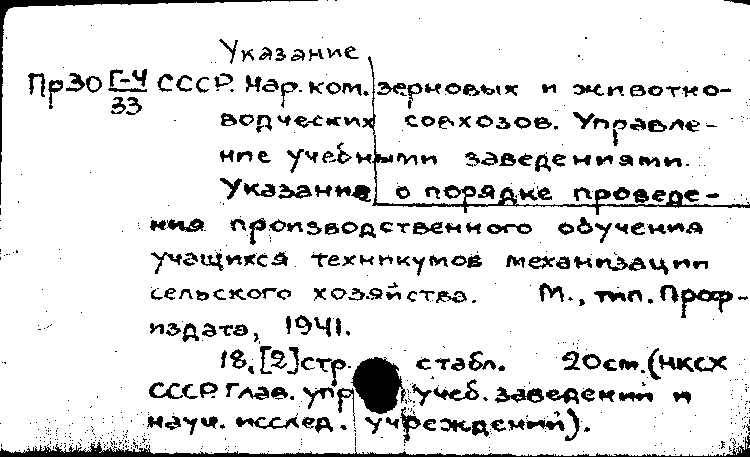 Указание
Пр30 Г-4/33 СССР. Нар. ком. зерновых и животно-
водческих совхозов. Управле-
ние учебными заведениями.
Указания о порядке проведе-
ния производственного обучения
учащихся техникумов механизации
сельского хозяйства. М., тип. Проф-
издата, 1941.
18, [2] стр. с табл. 20см. (НКСХ
СССР. Глав. упр учеб. заведений и
науч. исслед. учреждений).